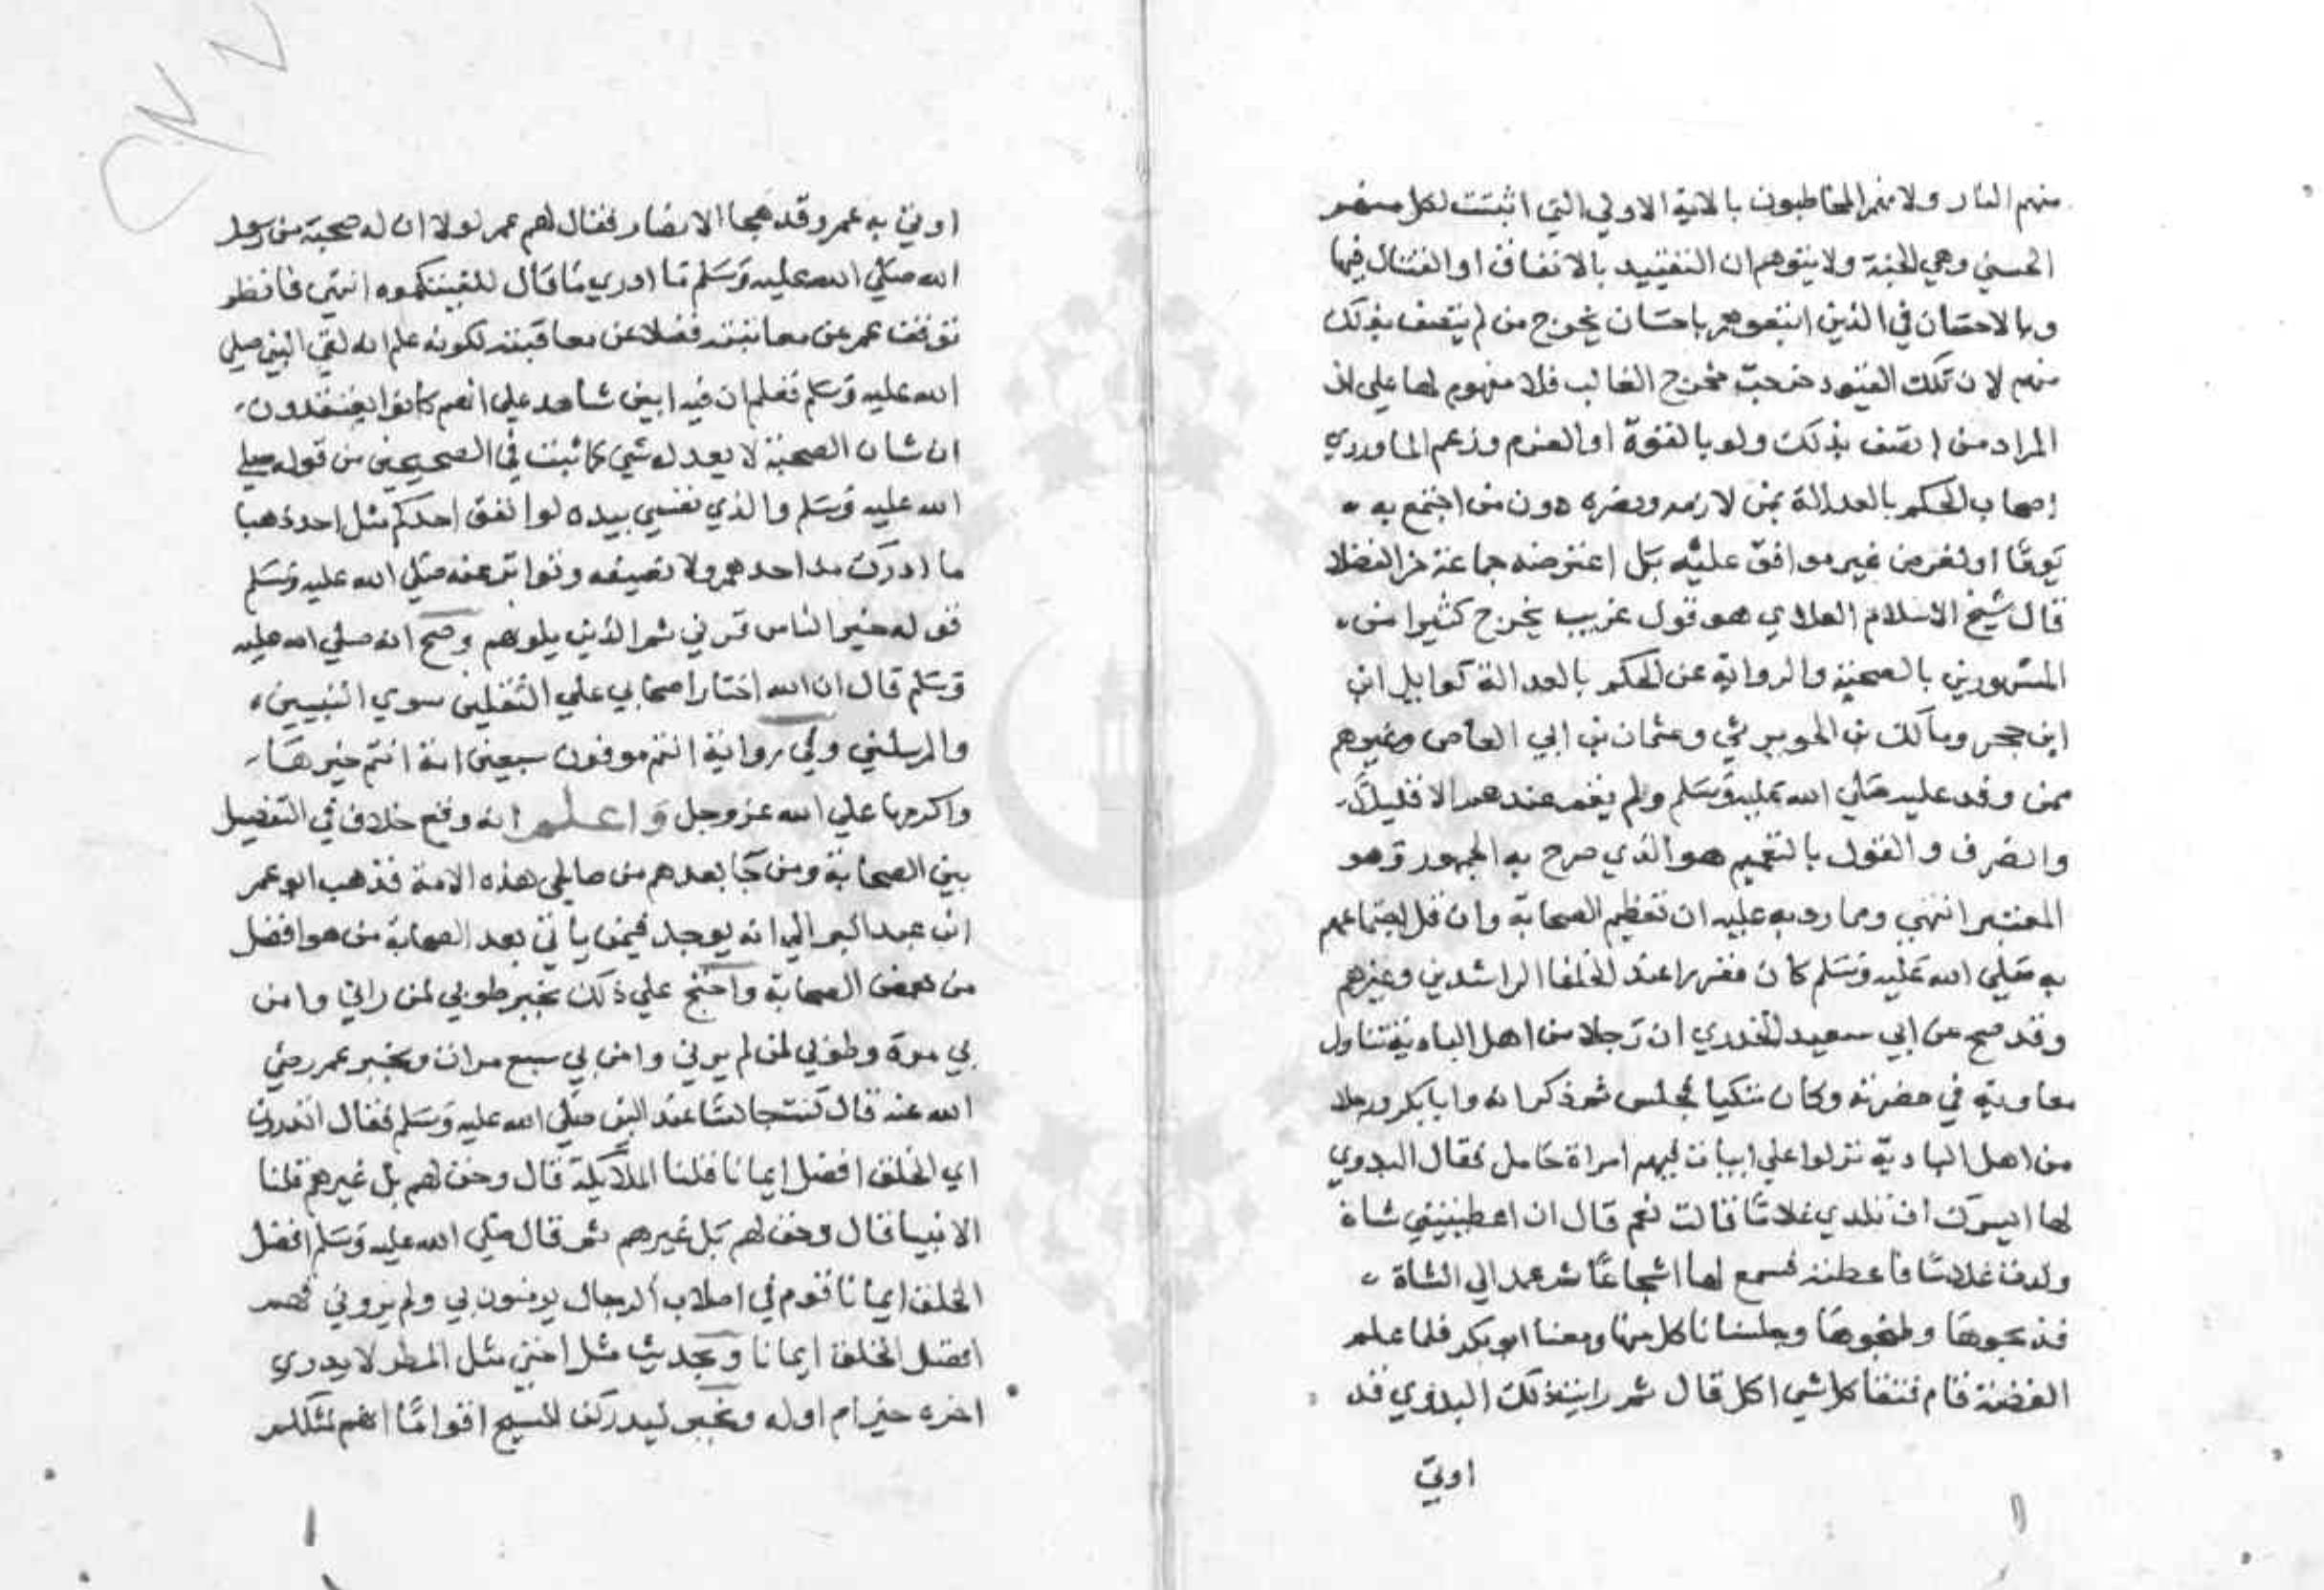 منهم النار ولانهم المخاطبون بالاية الاولي التي اثبتت لكل منهم
الحسني وهي الجنة ولا يتوهم ان التقييد بالانفاق او القتال فيها
وبالاحسان في الذين اتبعوهم باحسان يخرج من لم يتصف بذلك
منهم لان تلك القيود خرجت مخرج الغالب فلا مفهوم لها علي ان
المراد من اتصف بذلك ولو بالقوة او العزم وزعم الماوردي
اختصاص الحكم بالعدالة بمن لازمه ونصره دون من اجتمع به
يوما او لغرض غير موافق عليه بل اعترضه جماعة من الفضلا
قال شيخ الاسلام العلاي هو قول غريب يخرج كثيرا من
المشهورين بالصحبة والرواية عن الحكم بالعدالة كوايل ابن
ابن حجر ومالك بن الحويرث وعثمان بن ابي العاص وغيرهم
ممن وفد عليه صلي الله عليه وسلم ولم يقم عنده الا قليلا
وانصرف والقول بالتعميم هو الذي صرح به الجمهور وهو
المعتبر انتهي ومما رد به عليه ان تعظيم الصحابة وان قل اجتماعهم
به صلي الله عليه وسلم كان مقررا عند الخلفا الراشدين وغيرهم
وقد صح عن ابي سعيد الخدري ان رجلا من اهل البادية تناول
معاوية في حضرته وكان متكيا فجلس ثم ذكر انه وابا بكر ورجلا
من اهل البادية نزلوا علي ابيات فيهم امراة حامل فقال البدوي
لها ايسرك ان تلدي غلاما قالت نعم قال ان اعطيتيني شاة
ولدت غلاما فاعطته فسجع لها اسجاعا ثم عمد الي الشاة
فذبحوها وطبخوها وجلسنا ناكل منها ومعنا ابو بكر فلما علم
القصة قام فتقيا كل شي اكل قال ثم رايت ذلك البدوي قد
اوتي
اوتي به عمر وقد هجا الانصار فقال لهم عمر لولا ان له صحبة من رسول
الله صلي الله عليه وسلم ما ادري ما قال لكفيتكموه انتهي فانظر
توقف عمر عن معاتبته فضلا عن معاقبته لكونه علم انه لقي النبي صلي
الله عليه وسلم فعلم ان فيه ابين شاهد علي انهم كانوا يعتقدون
ان شان الصحبة لا يعدله شي كما ثبت في الصحيحين من قوله صلي
الله عليه وسلم والذي نفسي بيده لو انفق احدكم مثل احد ذهبا
ما ادرك مد احدهم ولا نصيفه وتواتر عنه صلي الله عليه وسلم
قوله خير الناس قرني ثم الذين يلونهم وصح انه صلي الله عليه
وسلم قال ان الله اختار اصحابي علي الثقلين سوي النبيين
والمرسلين وفي رواية انتم موفون سبعين امة انتم خيرها
واكرمها علي الله عز وجل واعلم انه وقع خلاف في التفضيل
بين الصحابة ومن جا بعدهم من صالحي هذه الامة فذهب ابو عمر
ابن عبد البر الي انه يوجد فيمن ياتي بعد الصحابة من هو افضل
من بعض الصحابة واحتج علي ذلك بخبر طوبي لمن راني وامن
بي مرة وطوبي لمن لم يرني وامن بي سبع مرات وبخبر عمر رضي
الله عنه قال كنت جالسا عند النبي صلي الله عليه وسلم فقال اتدرون
اي الخلق افضل ايمانا قلنا الملايكة قال وحق لهم بل غيرهم قلنا
الانبيا قال وحق لهم بل غيرهم ثم قال صلي الله عليه وسلم افضل
الخلق ايمانا قوم في اصلاب الرجال يومنون بي ولم يروني فهم
افضل الخلق ايمانا وبحديث مثل امتي مثل المطر لا يدري
اخره خير ام اوله وبخبر ليدركن المسيح اقواما انهم لمثلكم